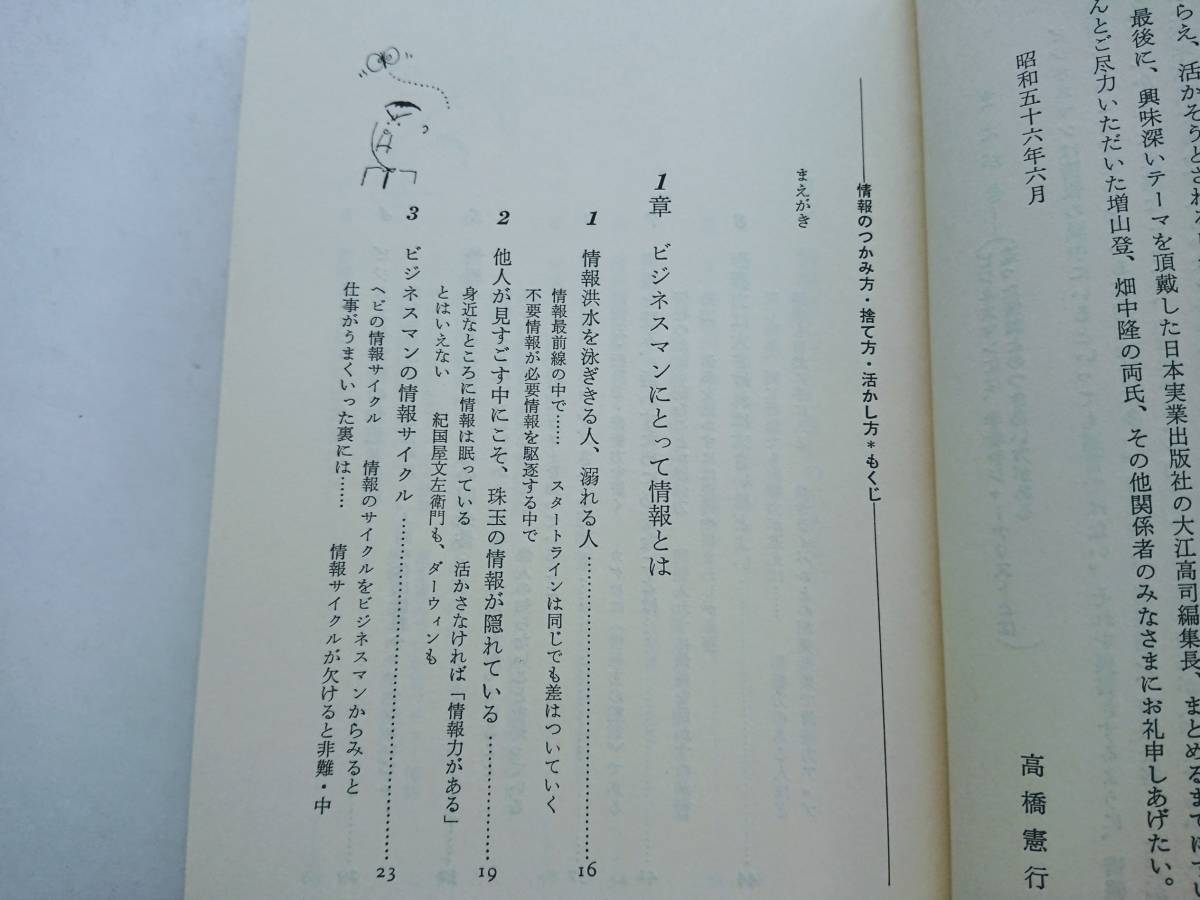 らえ、活かそうとされ
最後に、興味深いテーマを頂戴した日本実業出版社の大江高司編集長、まとめるまでにてい
んとご尽力いただいた増山登、畑中隆の両氏、その他関係者のみなさまにお礼申しあげたい。
昭和五十六年六月
高橋憲行
情報のつかみ方・捨て方・活かし方*もくじ
まえがき
1章 ビジネスマンにとって情報とは
1 情報洪水を泳ぎきる人、溺れる人…………16
情報最前線の中で…… スタートラインは同じでも差はついていく
不要情報が必要情報を駆逐する中で
2 他人が見すごす中にこそ、珠玉の情報が隠れている…………19
身近なところに情報は眠っている 活かさなければ「情報力がある」
とはいえない 紀国屋文左衛門も、ダーウィンも
3 ビジネスマンの情報サイクル…………23
ヘビの情報サイクル 情報のサイクルをビジネスマンからみると
仕事がうまくいった裏には…… 情報サイクルが欠けると非難・中